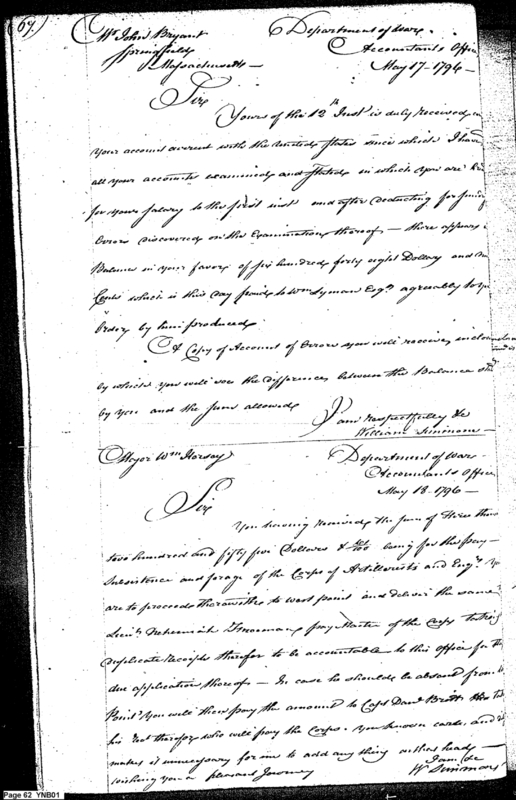 67.
Mr John Bryant
Springfield
Massachusetts —
Department of War
Accountants Offi
May 17 - 1796 —
Sir
Yours of the 12th Inst is duly received
your account current with the United States since which I have
all your accounts examined and Stated in which you are
for your Salary to the first inst and after deducting for
Errors discovered on the Examination thereof — there appears
Balance in your favor of Six hundred forty eight Dollars and
Cents which is this day paid to Wm Lyman Esqr agreeably to
Order by him produced
A Copy of Account of Errors you will receive inclosed
by which you will see the differences between the Balance
by you and the Sum allowed
I am respectfully &c
William Simmons
Major Wm Hersey
Department of War
Accountants Office
May 18 - 1796 —
Sir
You having received the Sum of Three thous
two hundred and fifty five Dollars & /100 being for the pay —
Subsistence and forage of the Corps of Artillerists and Engrs
are to proceed therewith to West point and deliver the same
Lieut Nehemiah Freeman pay Master of the Corps taking
duplicate receipts therefor to be accountable to this Office for
due application thereof — In case he should be absent from
Point you will then pay the amount to Capt Danl Britt
his rect therefor, who will pay the Corps. Your known care, and
makes it unnecessary for me to add any thing on this head —
Wishing you a pleasant Journey
I am &c
W Simmons
Page 62 YNB01